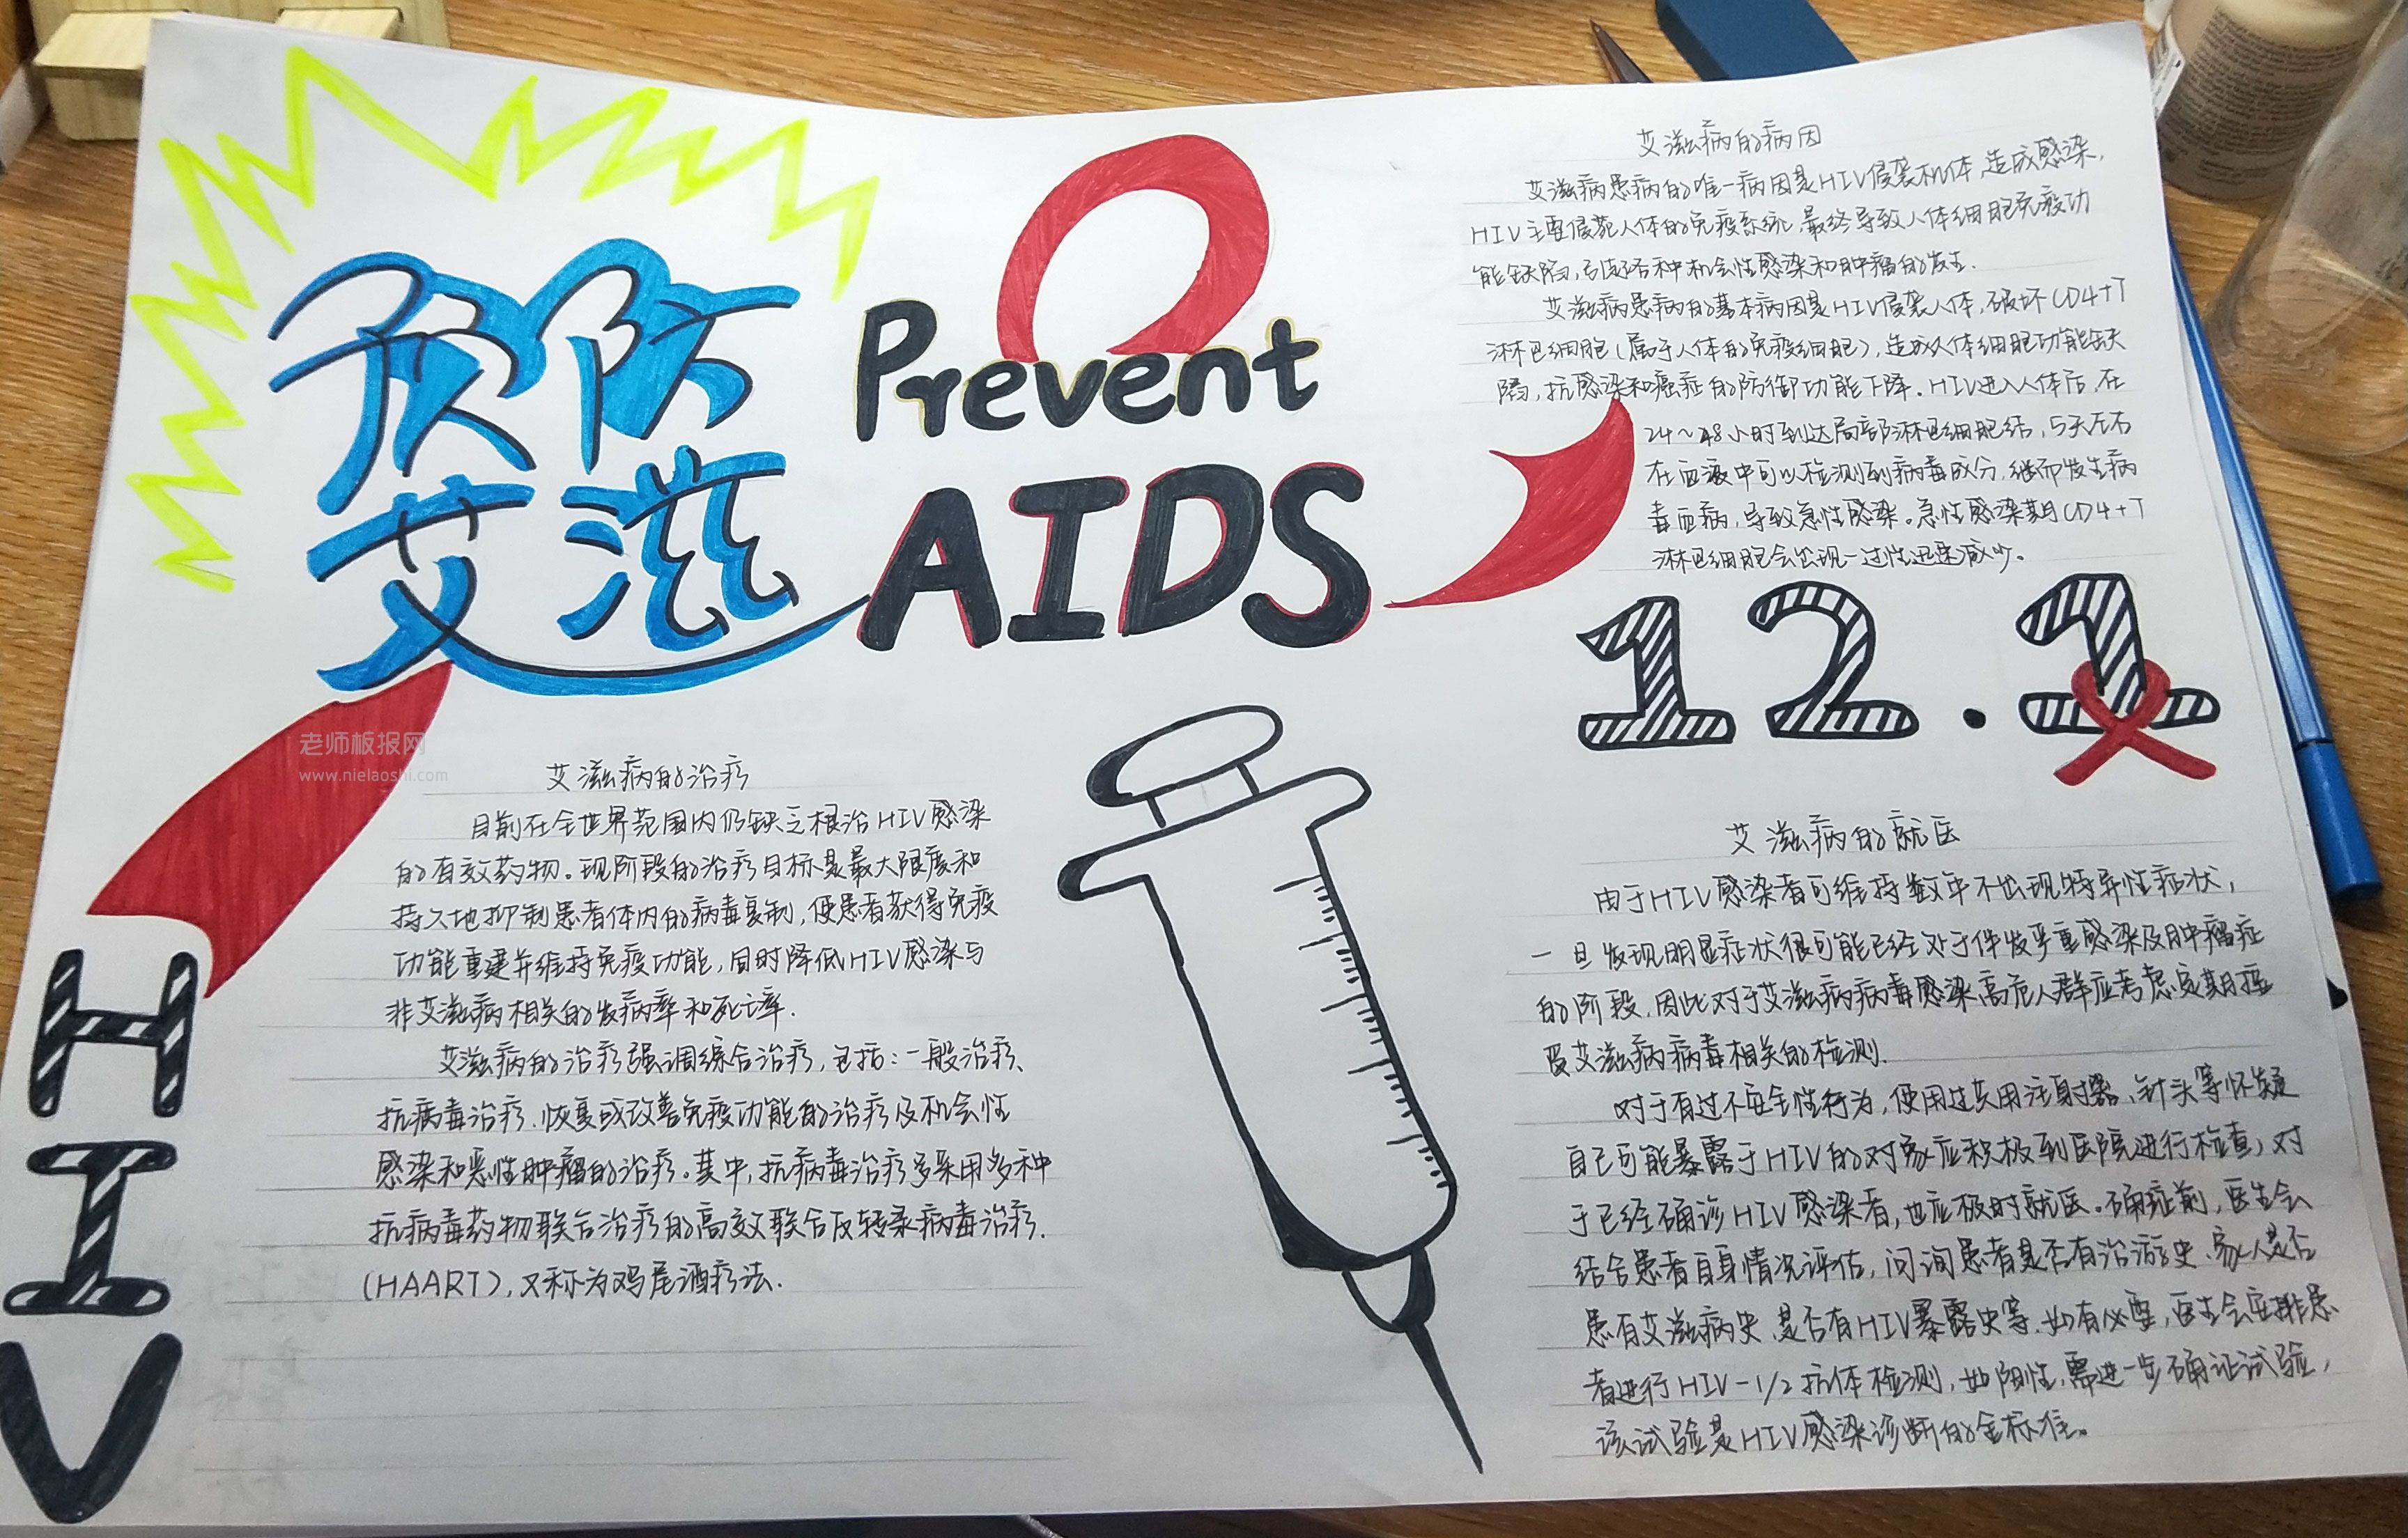 预防
艾滋
Prevent
AIDS
艾滋病的病因
艾滋病患病的唯一病因是HIV侵袭机体,造成感染,
HIV主要侵犯人体的免疫系统,最终导致人体细胞免疫功
能缺陷,引起各种机会性感染和肿瘤的发生.
艾滋病患病的基本病因是HIV侵袭人体,破坏CD4+T
淋巴细胞(属于人体的免疫细胞),造成人体细胞功能缺
陷,抗感染和癌症的防御功能下降.HIV进入人体后,在
24~48小时到达局部淋巴细胞结,5天左右
在血液中可以检测到病毒成分,继而发生病
毒血病,导致急性感染。急性感染期CD4+T
淋巴细胞会出现一过性迅速减少。
12.1
老师板报网
www.nielaoshi.com
艾滋病的治疗
目前在全世界范围内仍缺乏根治HIV感染
的有效药物。现阶段的治疗目标是最大限度和
持久地抑制患者体内的病毒复制,使患者获得免疫
功能重建并维持免疫功能,同时降低HIV感染与
非艾滋病相关的发病率和死亡率.
艾滋病的治疗强调综合治疗,包括:一般治疗、
抗病毒治疗、恢复或改善免疫功能的治疗及机会性
感染和恶性肿瘤的治疗。其中,抗病毒治疗多采用多种
抗病毒药物联合治疗的高效联合反转录病毒治疗.
(HAART),又称为鸡尾酒疗法.
HIV
艾滋病的就医
由于HIV感染者可维持数年不出现特异性症状,
一旦发现明显症状很可能已经处于伴发严重感染及肿瘤症
的阶段,因此对于艾滋病病毒感染高危人群应考虑定期接
受艾滋病病毒相关的检测.
对于有过不安全性行为,使用过共用注射器、针头等怀疑
自己可能暴露于HIV的对象应积极到医院进行检查,对
于已经确诊HIV感染者,也应极时就医。确症前,医生会
结合患者自身情况评估,问询患者是否有冶游史、家人是否
患有艾滋病史、是否有HIV暴露史等.如有必要,医生会安排患
者进行HIV-1/2抗体检测,如阳性,需进一步确证试验,
该试验是HIV感染诊断的金标准。